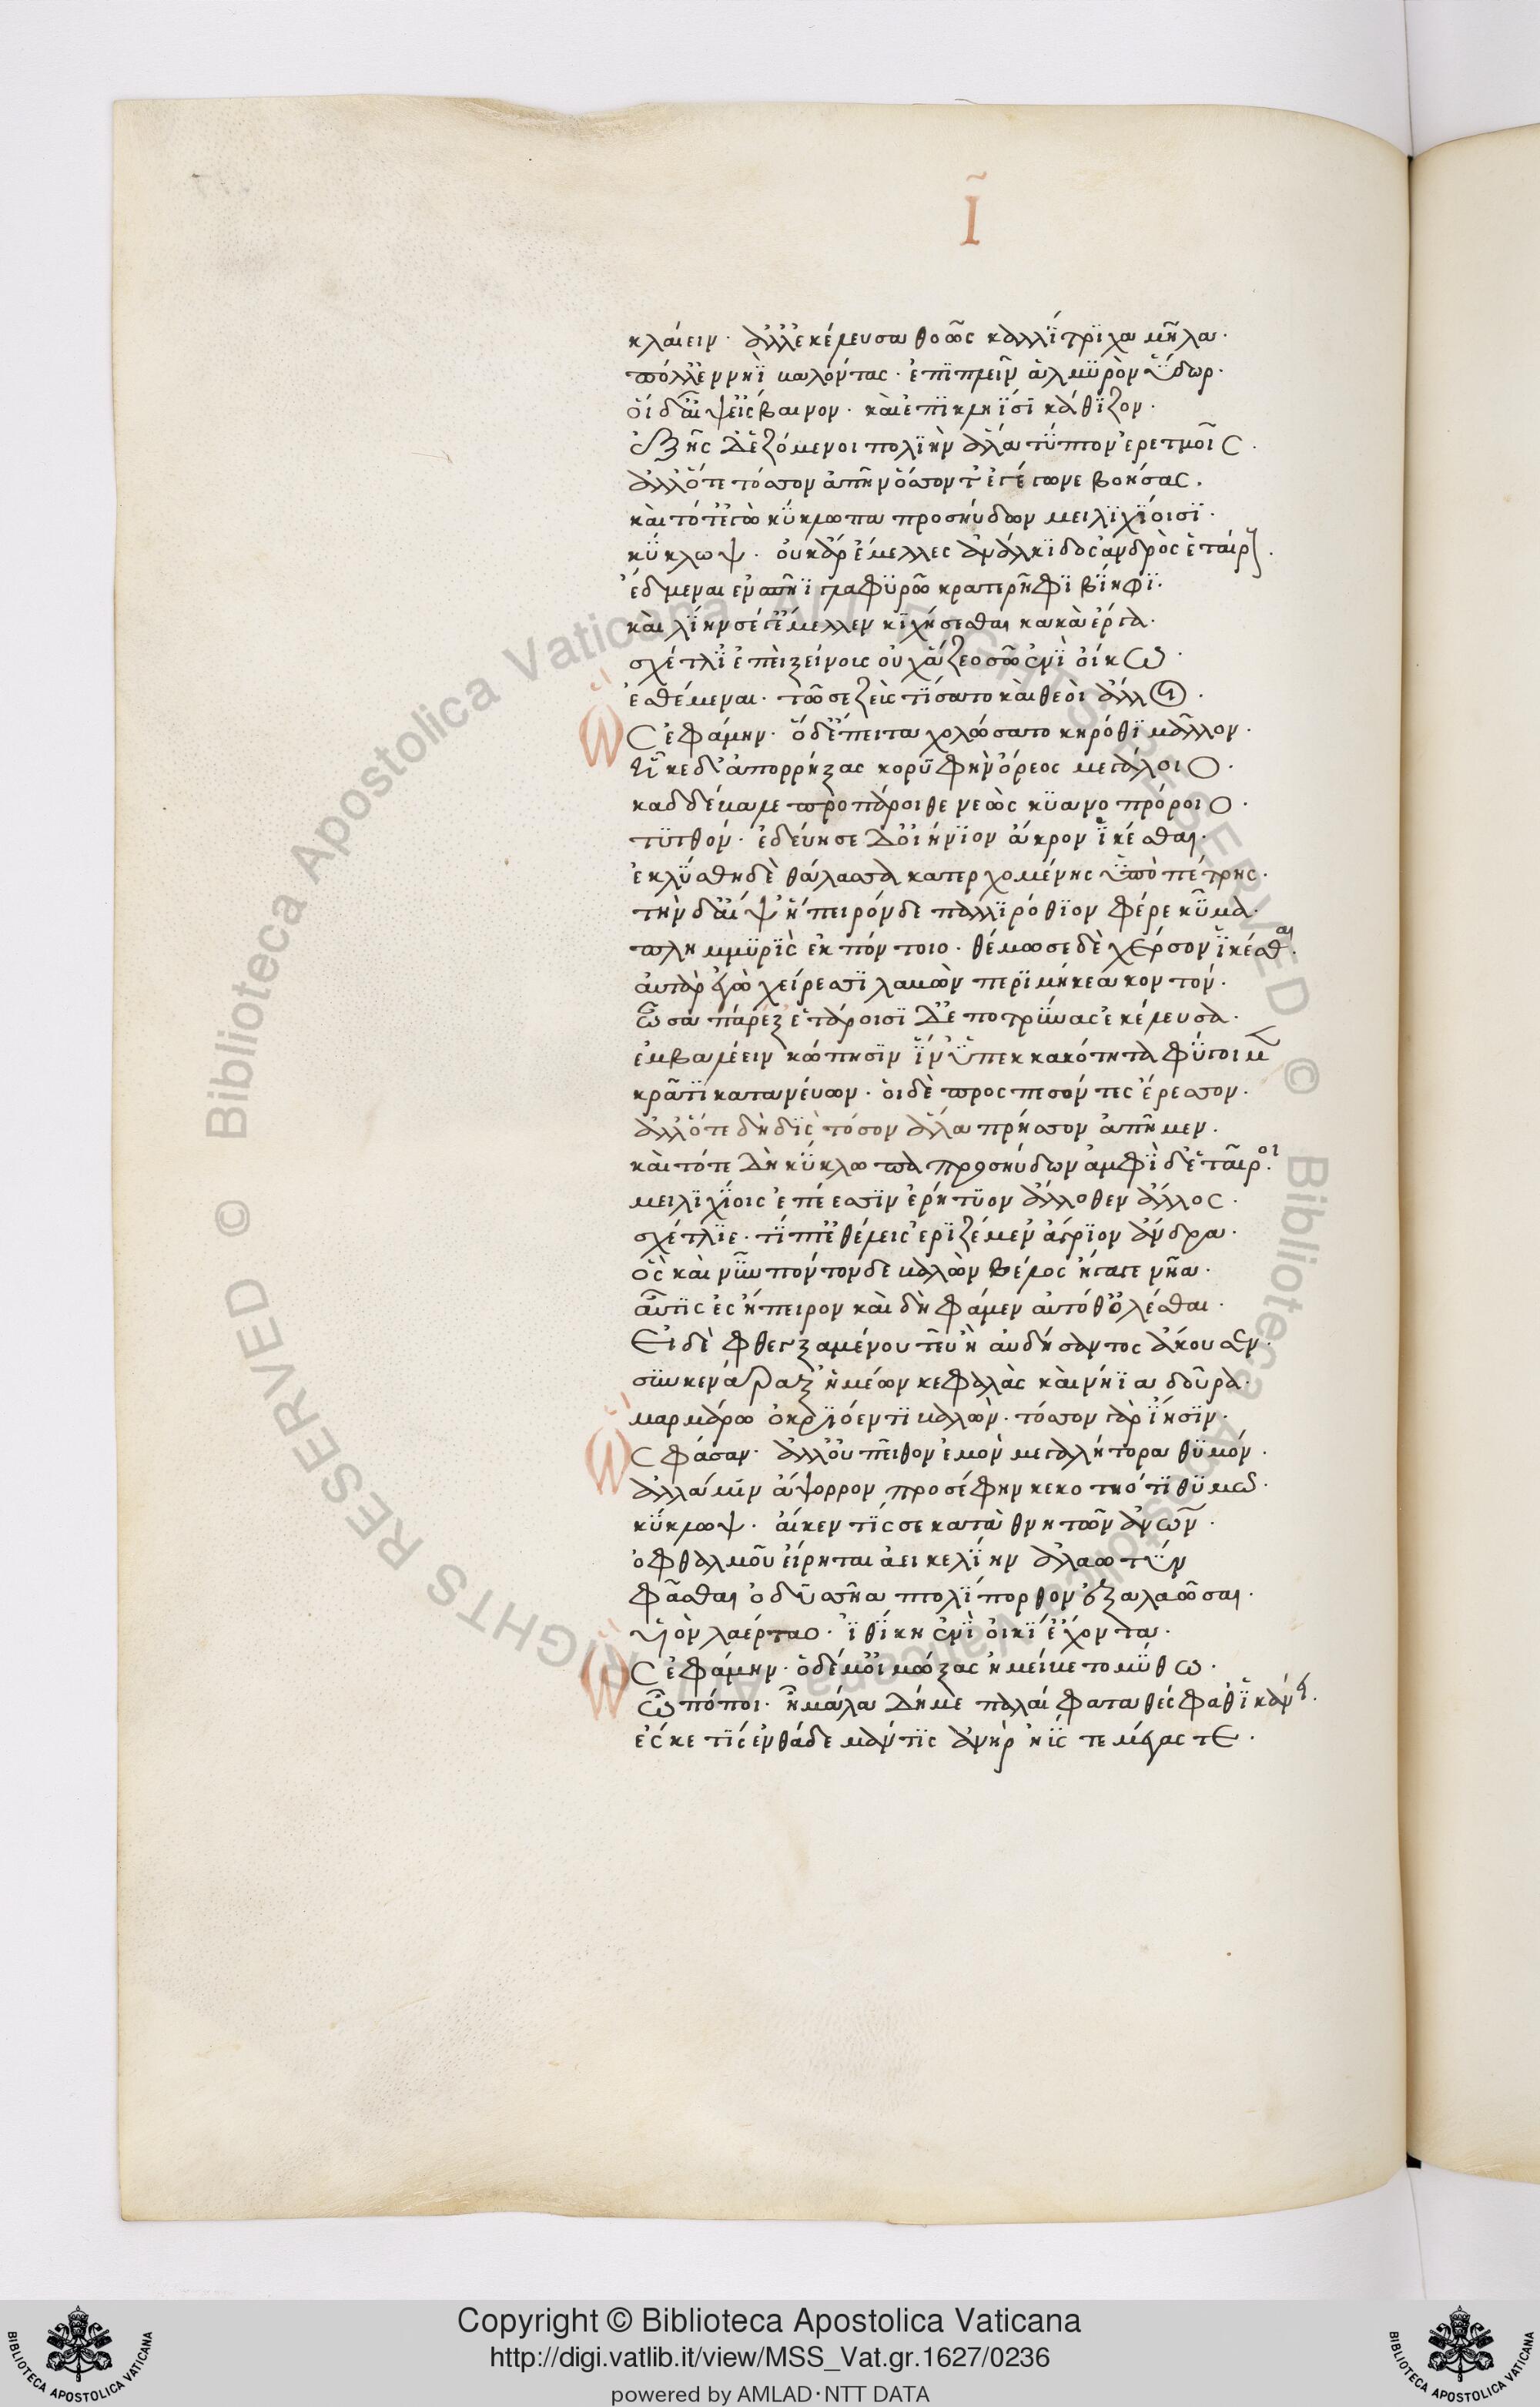 Ῑ
κλαίειν· ἀλλ' ἐκέλευσα θοῶς καλλίτριχα μῆλα·
πόλλ' ἐν νηῒ βαλόντας· ἐπιπλεῖν ἁλμυρὸν ὕδωρ·
οἱ δ' αἶψ' εἴσβαινον· καὶ ἐπὶ κληῖσι κάθιζον·
ἑξῆς δ' ἑζόμενοι πολιὴν ἅλα τύπτον ἐρετμοῖς·
ἀλλ' ὅτε τόσσον ἀπῆν ὅσσον τ' ἐγέγωνε βοήσας·
καὶ τότ' ἐγὼ κύκλωπα προσηύδων μειλιχίοισι·
κύκλωψ· οὐκ ἄρ' ἔμελλες ἀνάλκιδος ἀνδρὸς ἑταίρους·
ἔδμεναι ἐν σπῆϊ γλαφυρῶ κρατερῆφι βίηφι·
καὶ λίην σέ γ' ἔμελλεν κιχήσεσθαι κακὰ ἔργα·
σχέτλι' ἐπεὶ ξείνοις οὐχ ἅζεο σῶ ἐνὶ οἴκω·
ἐσθέμεναι· τῶ σε ζεὺς τίσατο καὶ θεοὶ ἄλλοι·
Ὣς ἐφάμην· ὁ δ' ἔπειτα χολώσατο κηρόθι μᾶλλον·
ἧκε δ' ἀπορρήξας κορυφὴν ὄρεος μεγάλοιο·
καδδ' ἔβαλε προπάροιθε νεὼς κυανοπρώροιο·
τυτθόν· ἐδεύησε δ' οἰήνιον ἄκρον ἱκέσθαι·
ἐκλύσθη δὲ θάλασσα κατερχομένης ὑπὸ πέτρης·
τὴν δ' αἶψ' ἤπειρόνδε παλιρρόθιον φέρε κῦμα·
πλημμυρὶς ἐκ πόντοιο· θέμωσε δὲ χέρσον ἱκέσθαι·
αὐτὰρ ἐγὼ χείρεσσι λαβὼν περιμήκεα κοντόν·
ὦσα πάρεξ ἑτάροισι δ' ἐποτρύνας ἐκέλευσα·
ἐμβαλέειν κώπησιν ἵν' ὑπὲκ κακότητα φύγοιμεν
κρατὶ κατανεύων· οἱ δὲ προσπεσόντες ἔρεσσον·
ἀλλ' ὅτε δὴ δὶς τόσον ἅλα πρήσσον ἀπῆμεν·
καὶ τότε δὴ κύκλωπα προσηύδων ἀμφὶ δ' ἑταῖροι·
μειλιχίοις ἐπέεσσιν ἐρήτυον ἄλλοθεν ἄλλος·
σχέτλιε· τίπτ' ἐθέλεις ἐριζέμεν ἄγριον ἄνδρα·
ὃς καὶ νῦν πόντονδε βαλὼν βέλος ἤγαγε νῆα·
αὖτις ἐς ἤπειρον καὶ δὴ φάμεν αὐτόθ' ὀλέσθαι·
Εἰ δὲ φθεγξαμένου τευ ἢ αὐδήσαντος ἄκουσεν·
σύν κεν ἄραξ' ἡμέων κεφαλὰς καὶ νήϊα δοῦρα·
μαρμάρω ὀκριόεντι βαλών· τόσσον γὰρ ἵησιν·
Ὣς φάσαν· ἀλλ' οὐ πεῖθον ἐμὸν μεγαλήτορα θυμόν·
ἀλλά μιν ἄψορρον προσέφην κεκοτηότι θυμῶ·
κύκλωψ· αἴκεν τίς σε καταθνητῶν ἀνθρώπων·
ὀφθαλμοῦ εἴρηται ἀεικελίην ἀλαωτύν
φᾶσθαι ὀδυσσῆα πτολίπορθον ἐξαλαῶσαι·
υἱὸν λαέρταο· ἰθάκη ἐνὶ οἰκί' ἔχοντα·
Ὣς ἐφάμην· ὁ δέ μ' οἰμώξας ἠμείβετο μύθω·
ὦ πόποι· ἦ μάλα δή με παλαίφατα θέσφαθ' ἱκάνει·
ἔσκε τις ἐνθάδε μάντις ἀνὴρ ἠΰς τε μέγας τε·